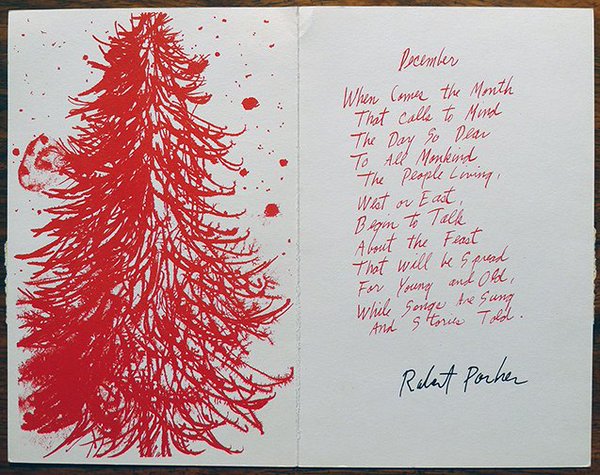 December
When Comes the Month
That Calls to Mind
The Day So Dear
To All Mankind
The People Living,
West or East,
Begin to Talk
About the Feast
That Will be Spread
For Young and Old,
While Songs Are Sung
And Stories Told.
Robert Parker